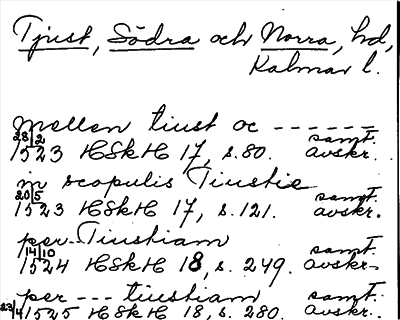 Tjust, Södra och Norra, hd,
Kalmar l.
mellan tiust oc ------
28/2 1523 HSkH 17, s. 80. samt. avskr.
in scopulis Tiustie
20/5 1523 HSkH 17, s. 121. samt. avskr.
per Tiustiam
14/10 1524 HSkH 18, s. 249. samt. avskr.
per --- tiustiam
23/4 1525 HSkH 18, s. 280. samt. avskr.